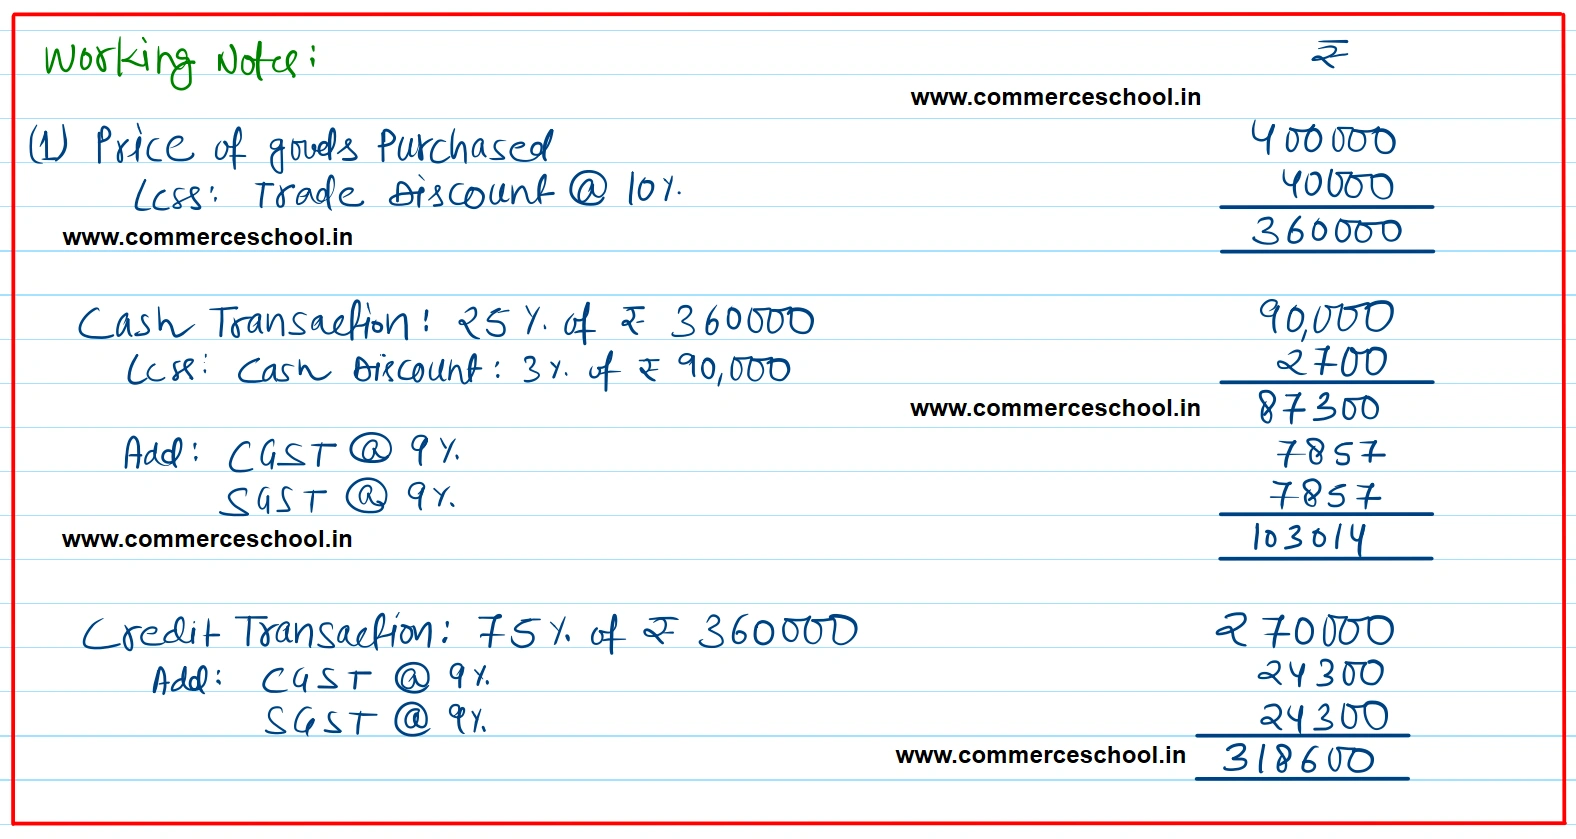 Working Note: ₹
www.commerceschool.in
(1) Price of goods Purchased 400000
Less: Trade Discount @ 10%. 40000
www.commerceschool.in 360000
Cash Transaction: 25%. of ₹ 360000 90,000
Less: Cash Discount: 3%. of ₹ 90,000 2700
www.commerceschool.in 87300
Add: CGST @ 9%. 7857
SGST @ 9%. 7857
www.commerceschool.in 103014
Credit Transaction: 75%. of ₹ 360000 270000
Add: CGST @ 9%. 24300
SGST @ 9%. 24300
www.commerceschool.in 318600